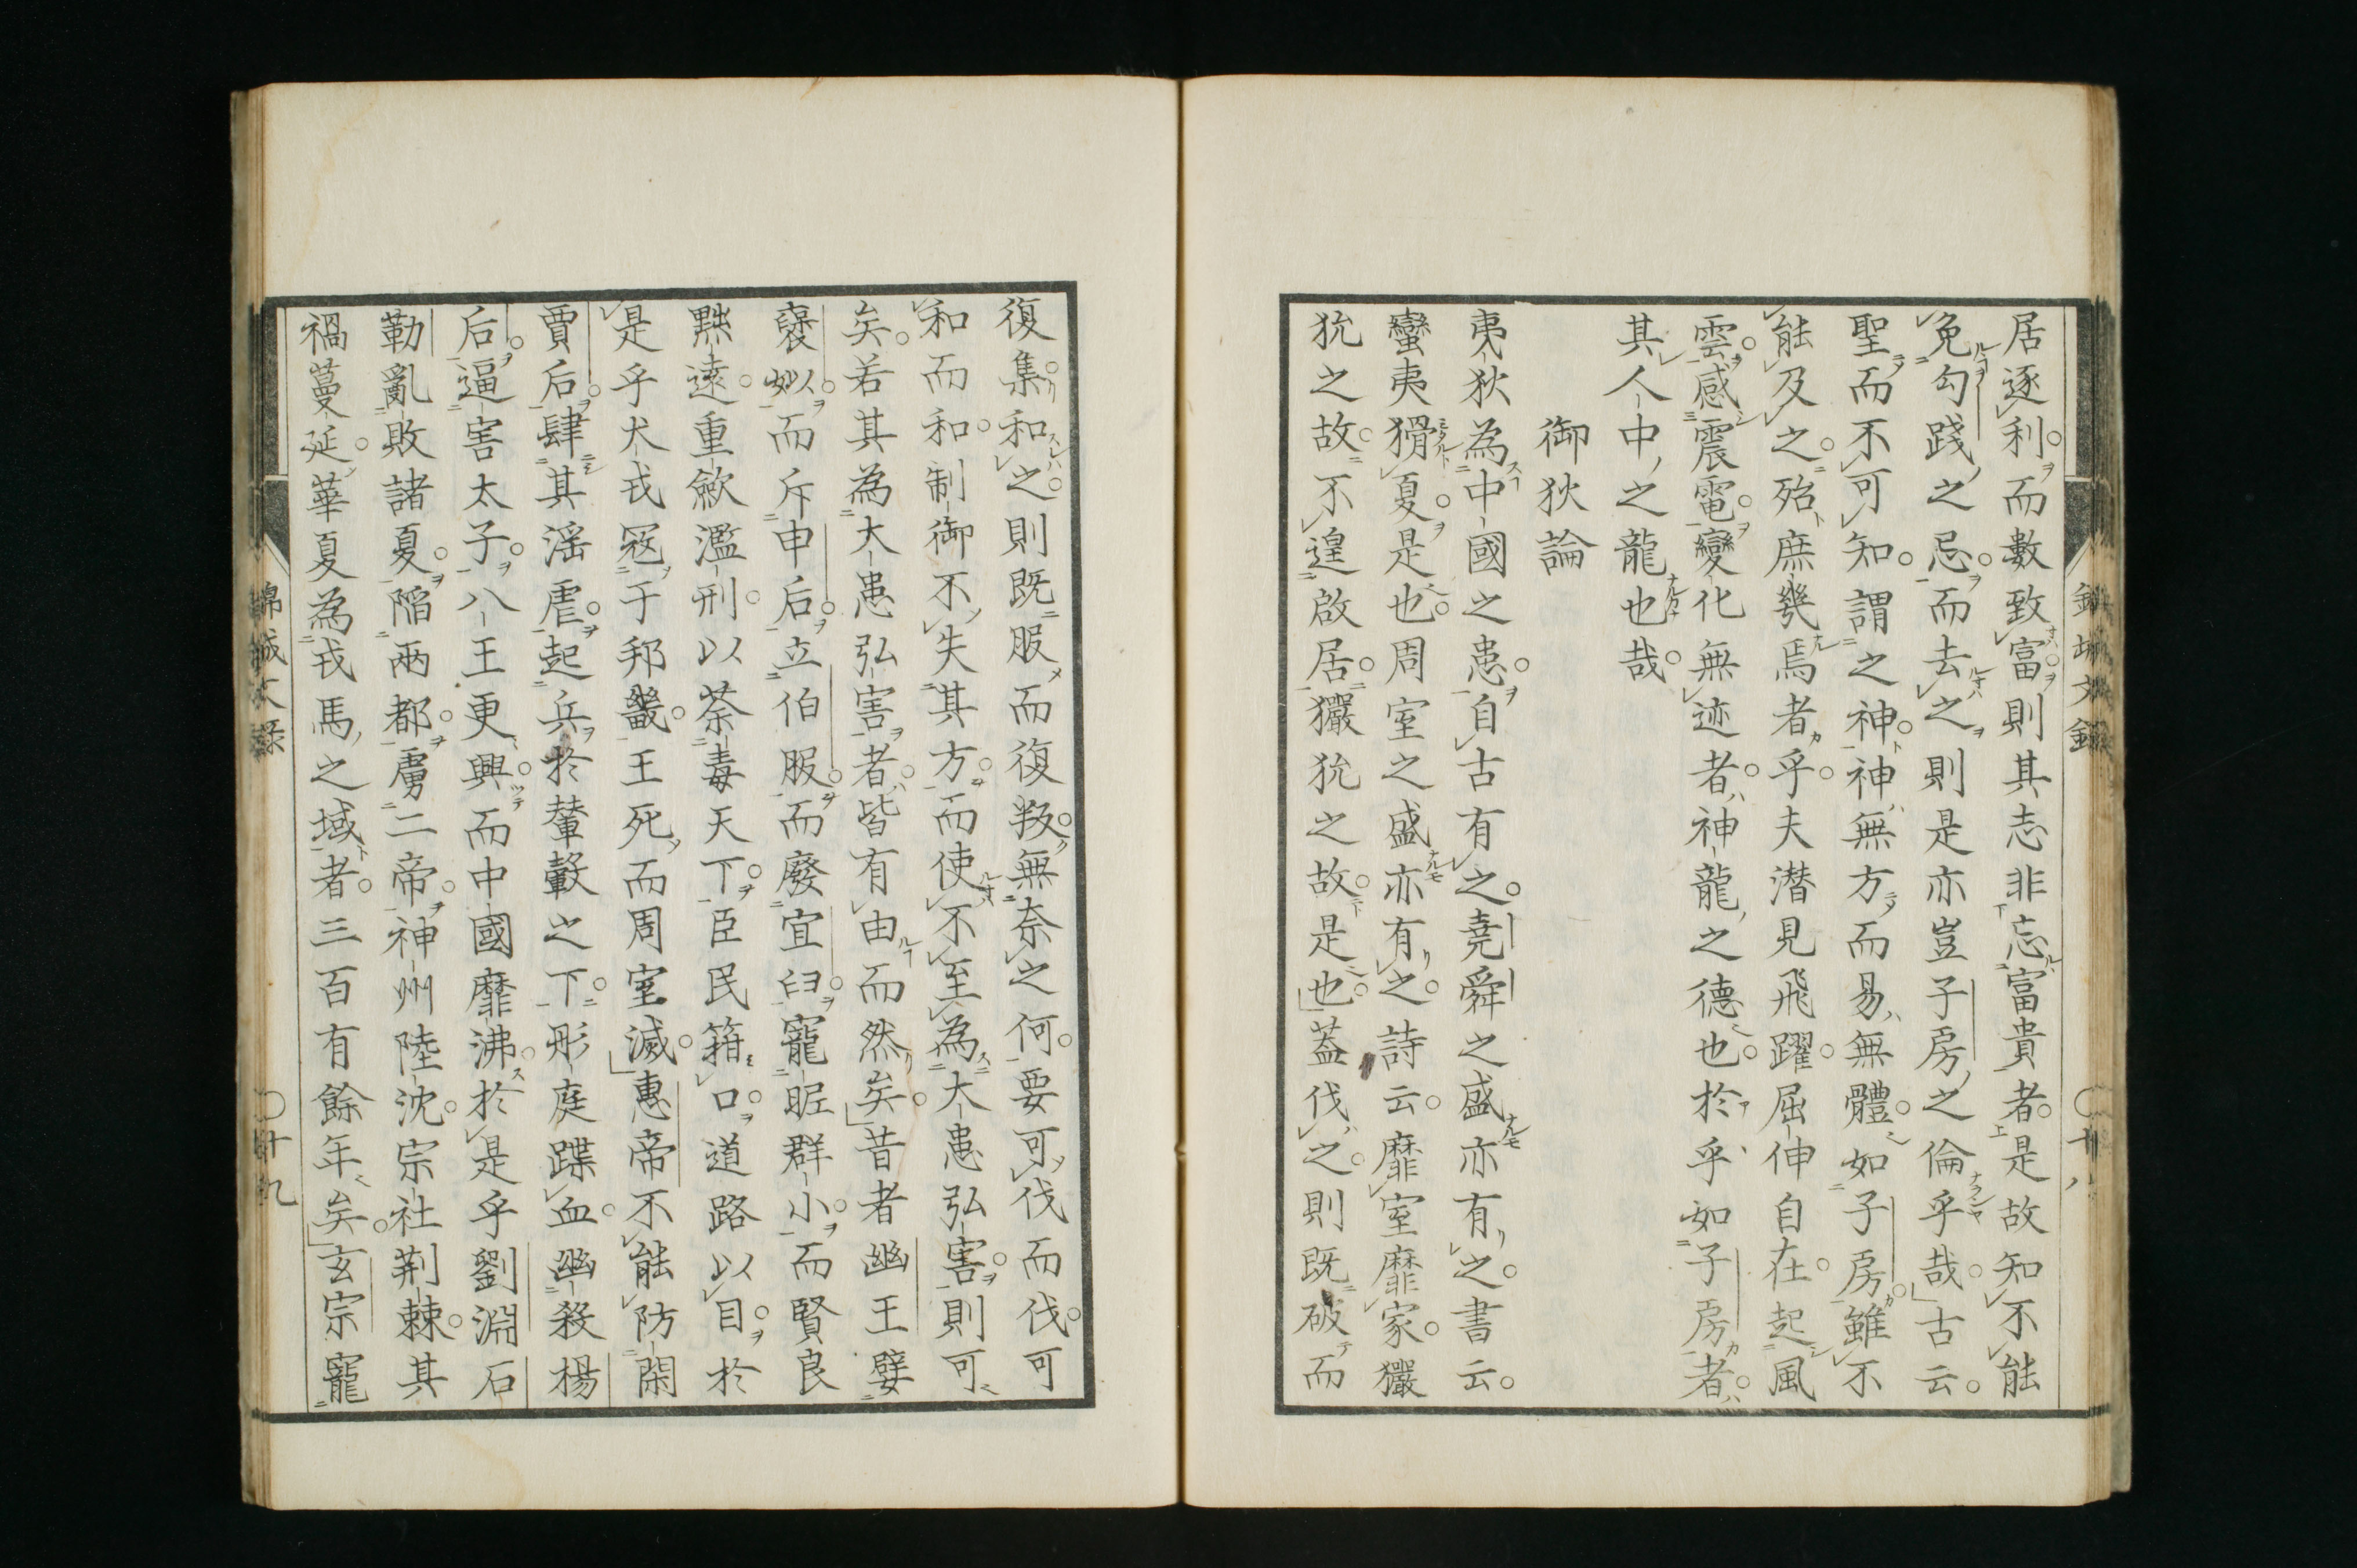 居逐利而數致富則其志非忘富貴者是故知不能
免勾踐之忌而去之則是亦豈子房之倫乎哉古云
聖而不可知謂之神神無方而易無體如子房雖不
能及之殆庶幾焉者乎夫潛見飛躍屈伸自在起風
雲感震電變化無迹者神龍之德也於乎如子房者
其人中之龍也哉
御狄論
夷狄為中國之患自古有之堯舜之盛亦有之書云
蠻夷猾夏是也周室之盛亦有之詩云靡室靡家玁
狁之故不遑啟居玁狁之故是也蓋伐之則既破而
復集和之則既服而復叛無奈之何要可伐而伐可
和而和制御不失其方而使不至為大患弘害則可
矣若其為大患弘害者皆有由而然矣昔者幽王嬖
襃姒而斥申后立伯服而廢宜臼寵昵群小而賢良
黜遠重斂濫刑以荼毒天下臣民箝口道路以目於
是乎犬戎寇于邦畿王死而周室滅惠帝不能防閑
賈后肆其淫虐起兵於輦轂之下形庭蹀血幽殺楊
后逼害太子八王更興而中國靡沸於是乎劉淵石
勒亂敗諸夏陷兩都虜二帝神州陸沈宗社荆棘其
禍蔓延華夏為戎馬之域者三百有餘年矣玄宗寵
錦城文錄
○十八
錦城文錄
○十九